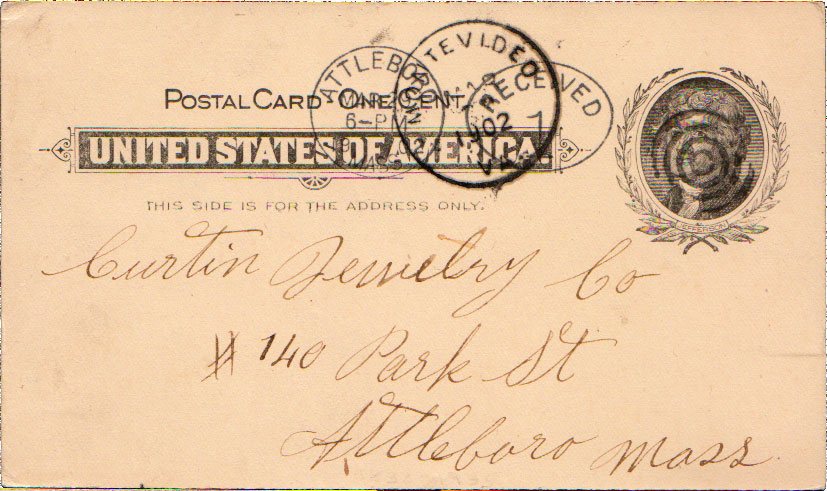 POSTAL CARD ONE CENT.
UNITED STATES OF AMERICA.
THIS SIDE IS FOR THE ADDRESS ONLY.
ATTLEBORO
MAR
6-PM
MASS.
MONTEVIDEO
1902
VA.
RECEIVED
7
JEFFERSON
Curtin Jewelry Co
# 140 Park St
Attleboro Mass.